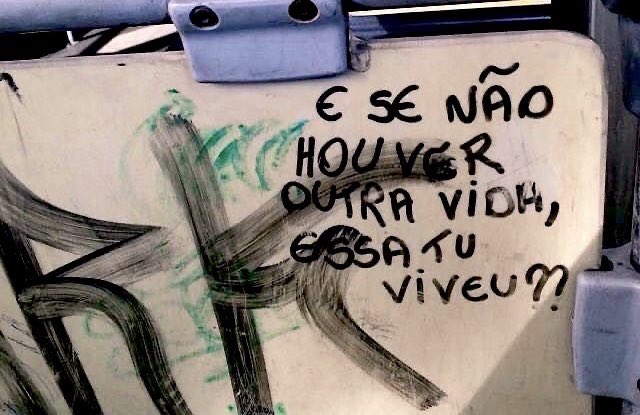 E SE NÃO
HOUVER
OUTRA VIDA,
ESSA TU
VIVEU??